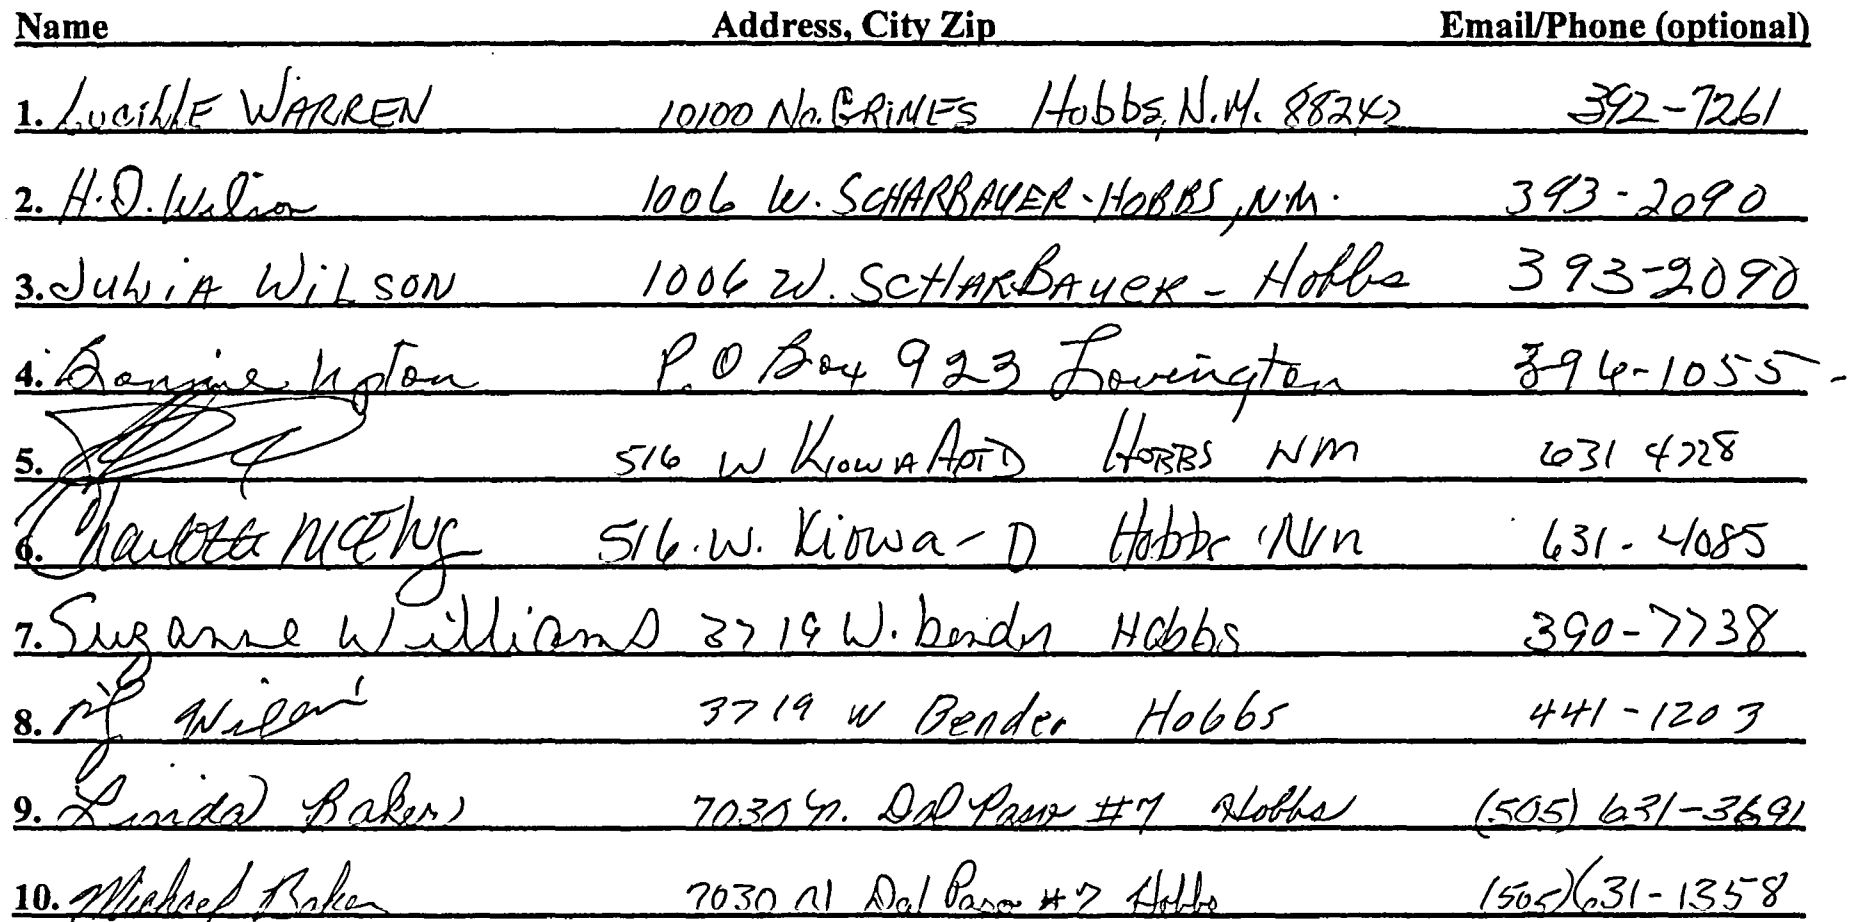 Name Address, City Zip Email/Phone (optional)
1. Lucille WARREN 10100 No. GRIMES Hobbs, N.M. 88242 392-7261
2. H.D. Wilson 1006 W. SCHARBAUER - HOBBS, N.M. 393-2090
3. Julia Wilson 1006 W. SCHARBAUER - Hobbs 393-2090
4. Bonnie Upton P.O Box 923 Lovington 396-1055
5. 516 W Kiowa Apt D HOBBS NM 631 4728
6. Charlotte 516. W. Kiowa - D Hobbs Nm 631-4085
7. Suzanne Williams 3719 W. bender Hobbs 390-7738
8. 3719 W Bender Hobbs 441-1203
9. Linda Baker 7030 N. Dal Paso #7 Hobbs (505) 631-3691
10. Michael Baker 7030 N Dal Paso #7 Hobbs (505) 631-1358